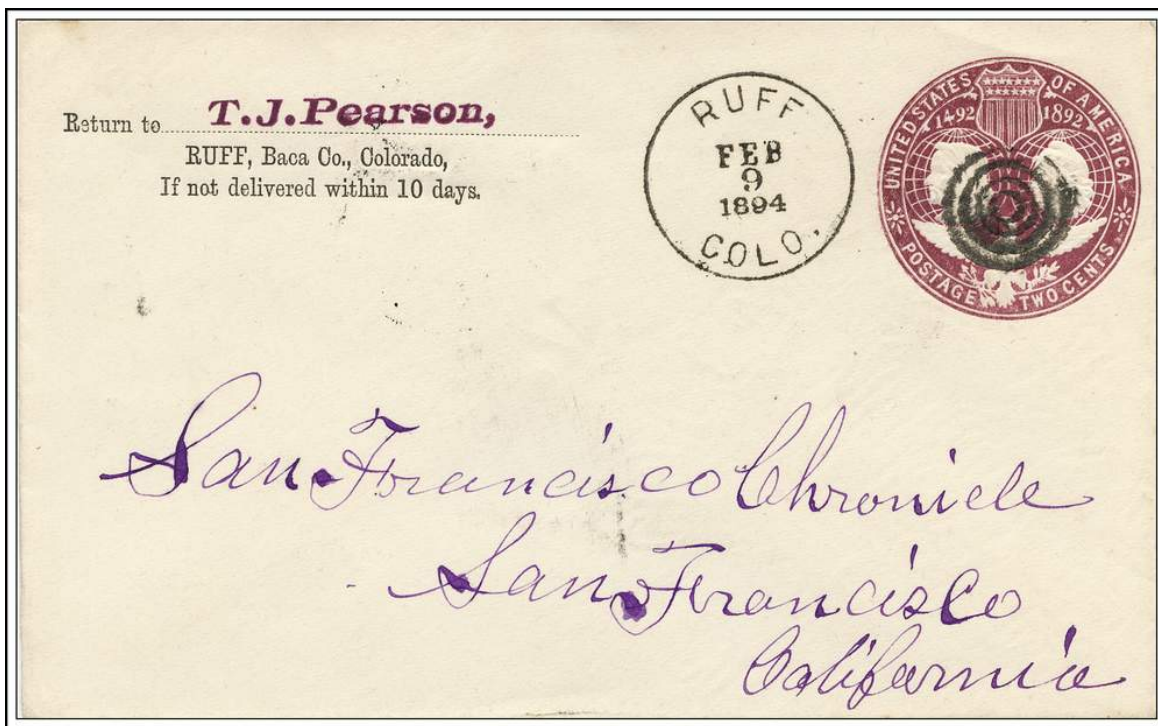 Return to T.J.Pearson,
RUFF, Baca Co., Colorado,
If not delivered within 10 days.
RUFF
FEB
9
1894
COLO.
UNITED STATES OF AMERICA
1492 1892
POSTAGE TWO CENTS
San Francisco Chronicle
San Francisco
California